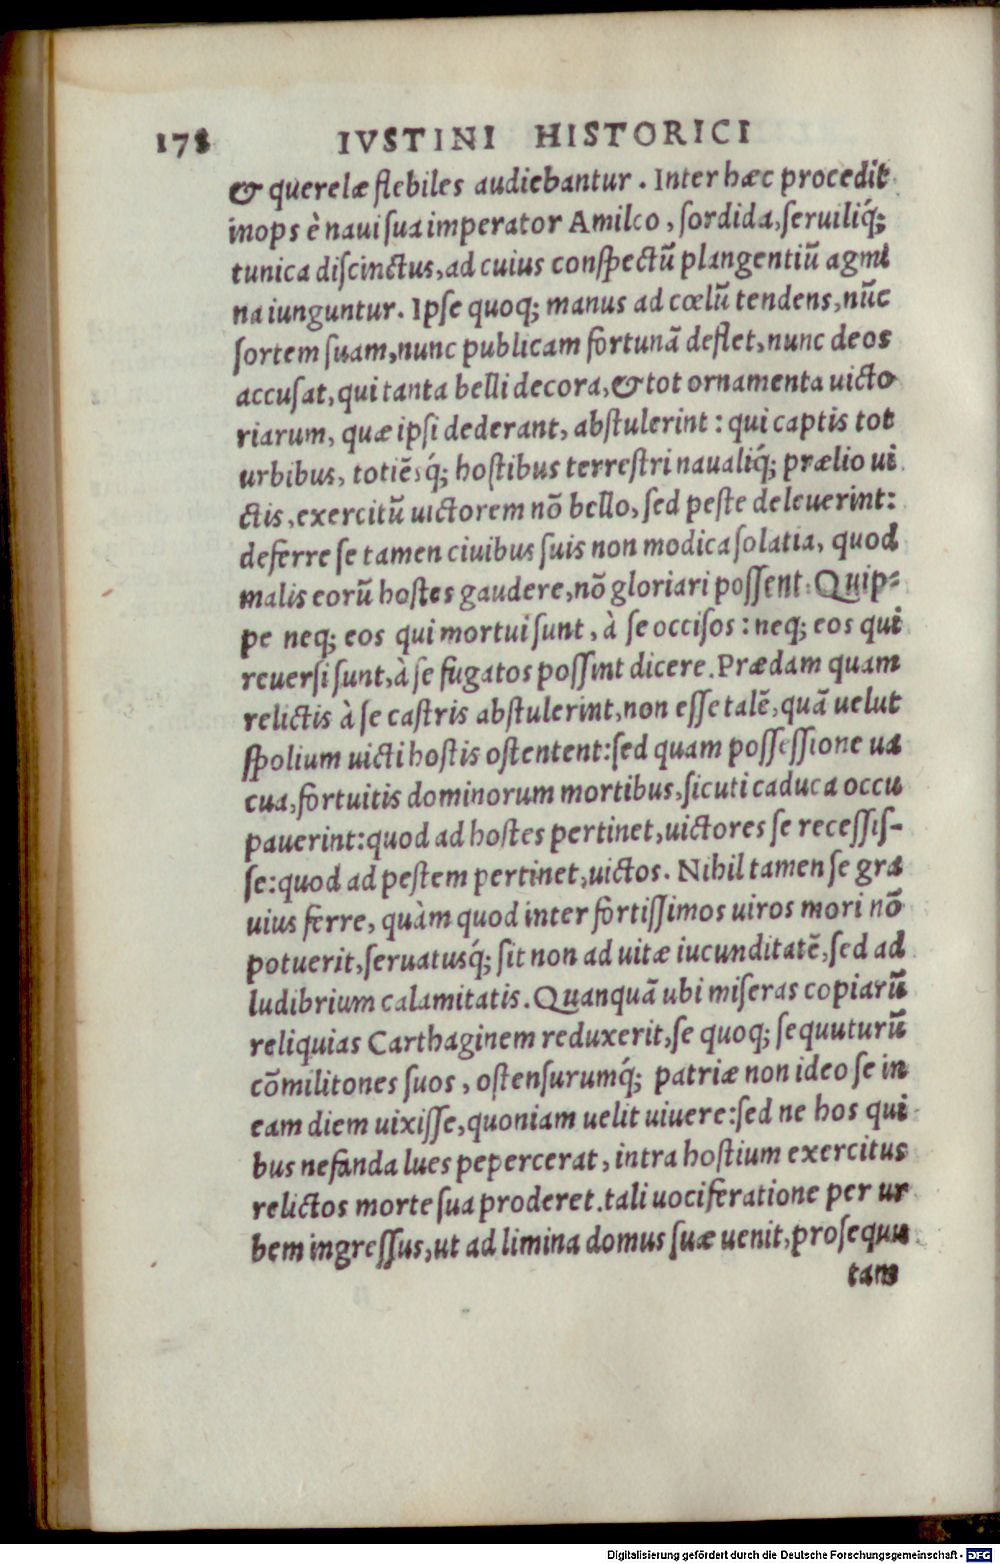 178 IVSTINI HISTORICI
& querelæ flebiles audiebantur. Inter hæc procedit
inops è naui sua imperator Amilco, sordida, seruiliq́;
tunica discinctus, ad cuius conspectũ plangentiũ agmi
na iunguntur. Ipse quoq; manus ad cœlũ tendens, nũc
sortem suam, nunc publicam fortunã deflet, nunc deos
accusat, qui tanta belli decora, & tot ornamenta uicto
riarum, quæ ipsi dederant, abstulerint: qui captis tot
urbibus, totiẽsq́; hostibus terrestri naualiq́; prælio ui
ctis, exercitũ uictorem nõ bello, sed peste deleuerint:
deferre se tamen ciuibus suis non modica solatia, quod
malis eorũ hostes gaudere, nõ gloriari possent. Quip-
pe neq; eos qui mortui sunt, à se occisos: neq; eos qui
reuersi sunt, à se fugatos possint dicere. Prædam quam
relictis à se castris abstulerint, non esse talẽ, quã uelut
spolium uicti hostis ostentent: sed quam possessione ua
cua, fortuitis dominorum mortibus, sicuti caduca occu
pauerint: quod ad hostes pertinet, uictores se recessis-
se: quod ad pestem pertinet, uictos. Nihil tamen se gra
uius ferre, quàm quod inter fortissimos uiros mori nõ
potuerit, seruatusq́; sit non ad uitæ iucunditatẽ, sed ad
ludibrium calamitatis. Quanquã ubi miseras copiarũ
reliquias Carthaginem reduxerit, se quoq; sequuturũ
cõmilitones suos, ostensurumq́; patriæ non ideo se in
eam diem uixisse, quoniam uelit uiuere: sed ne hos qui
bus nefanda lues pepercerat, intra hostium exercitus
relictos morte sua proderet. tali uociferatione per ur
bem ingressus, ut ad limina domus suæ uenit, prosequu
tam
Digitalisierung gefördert durch die Deutsche Forschungsgemeinschaft - DFG